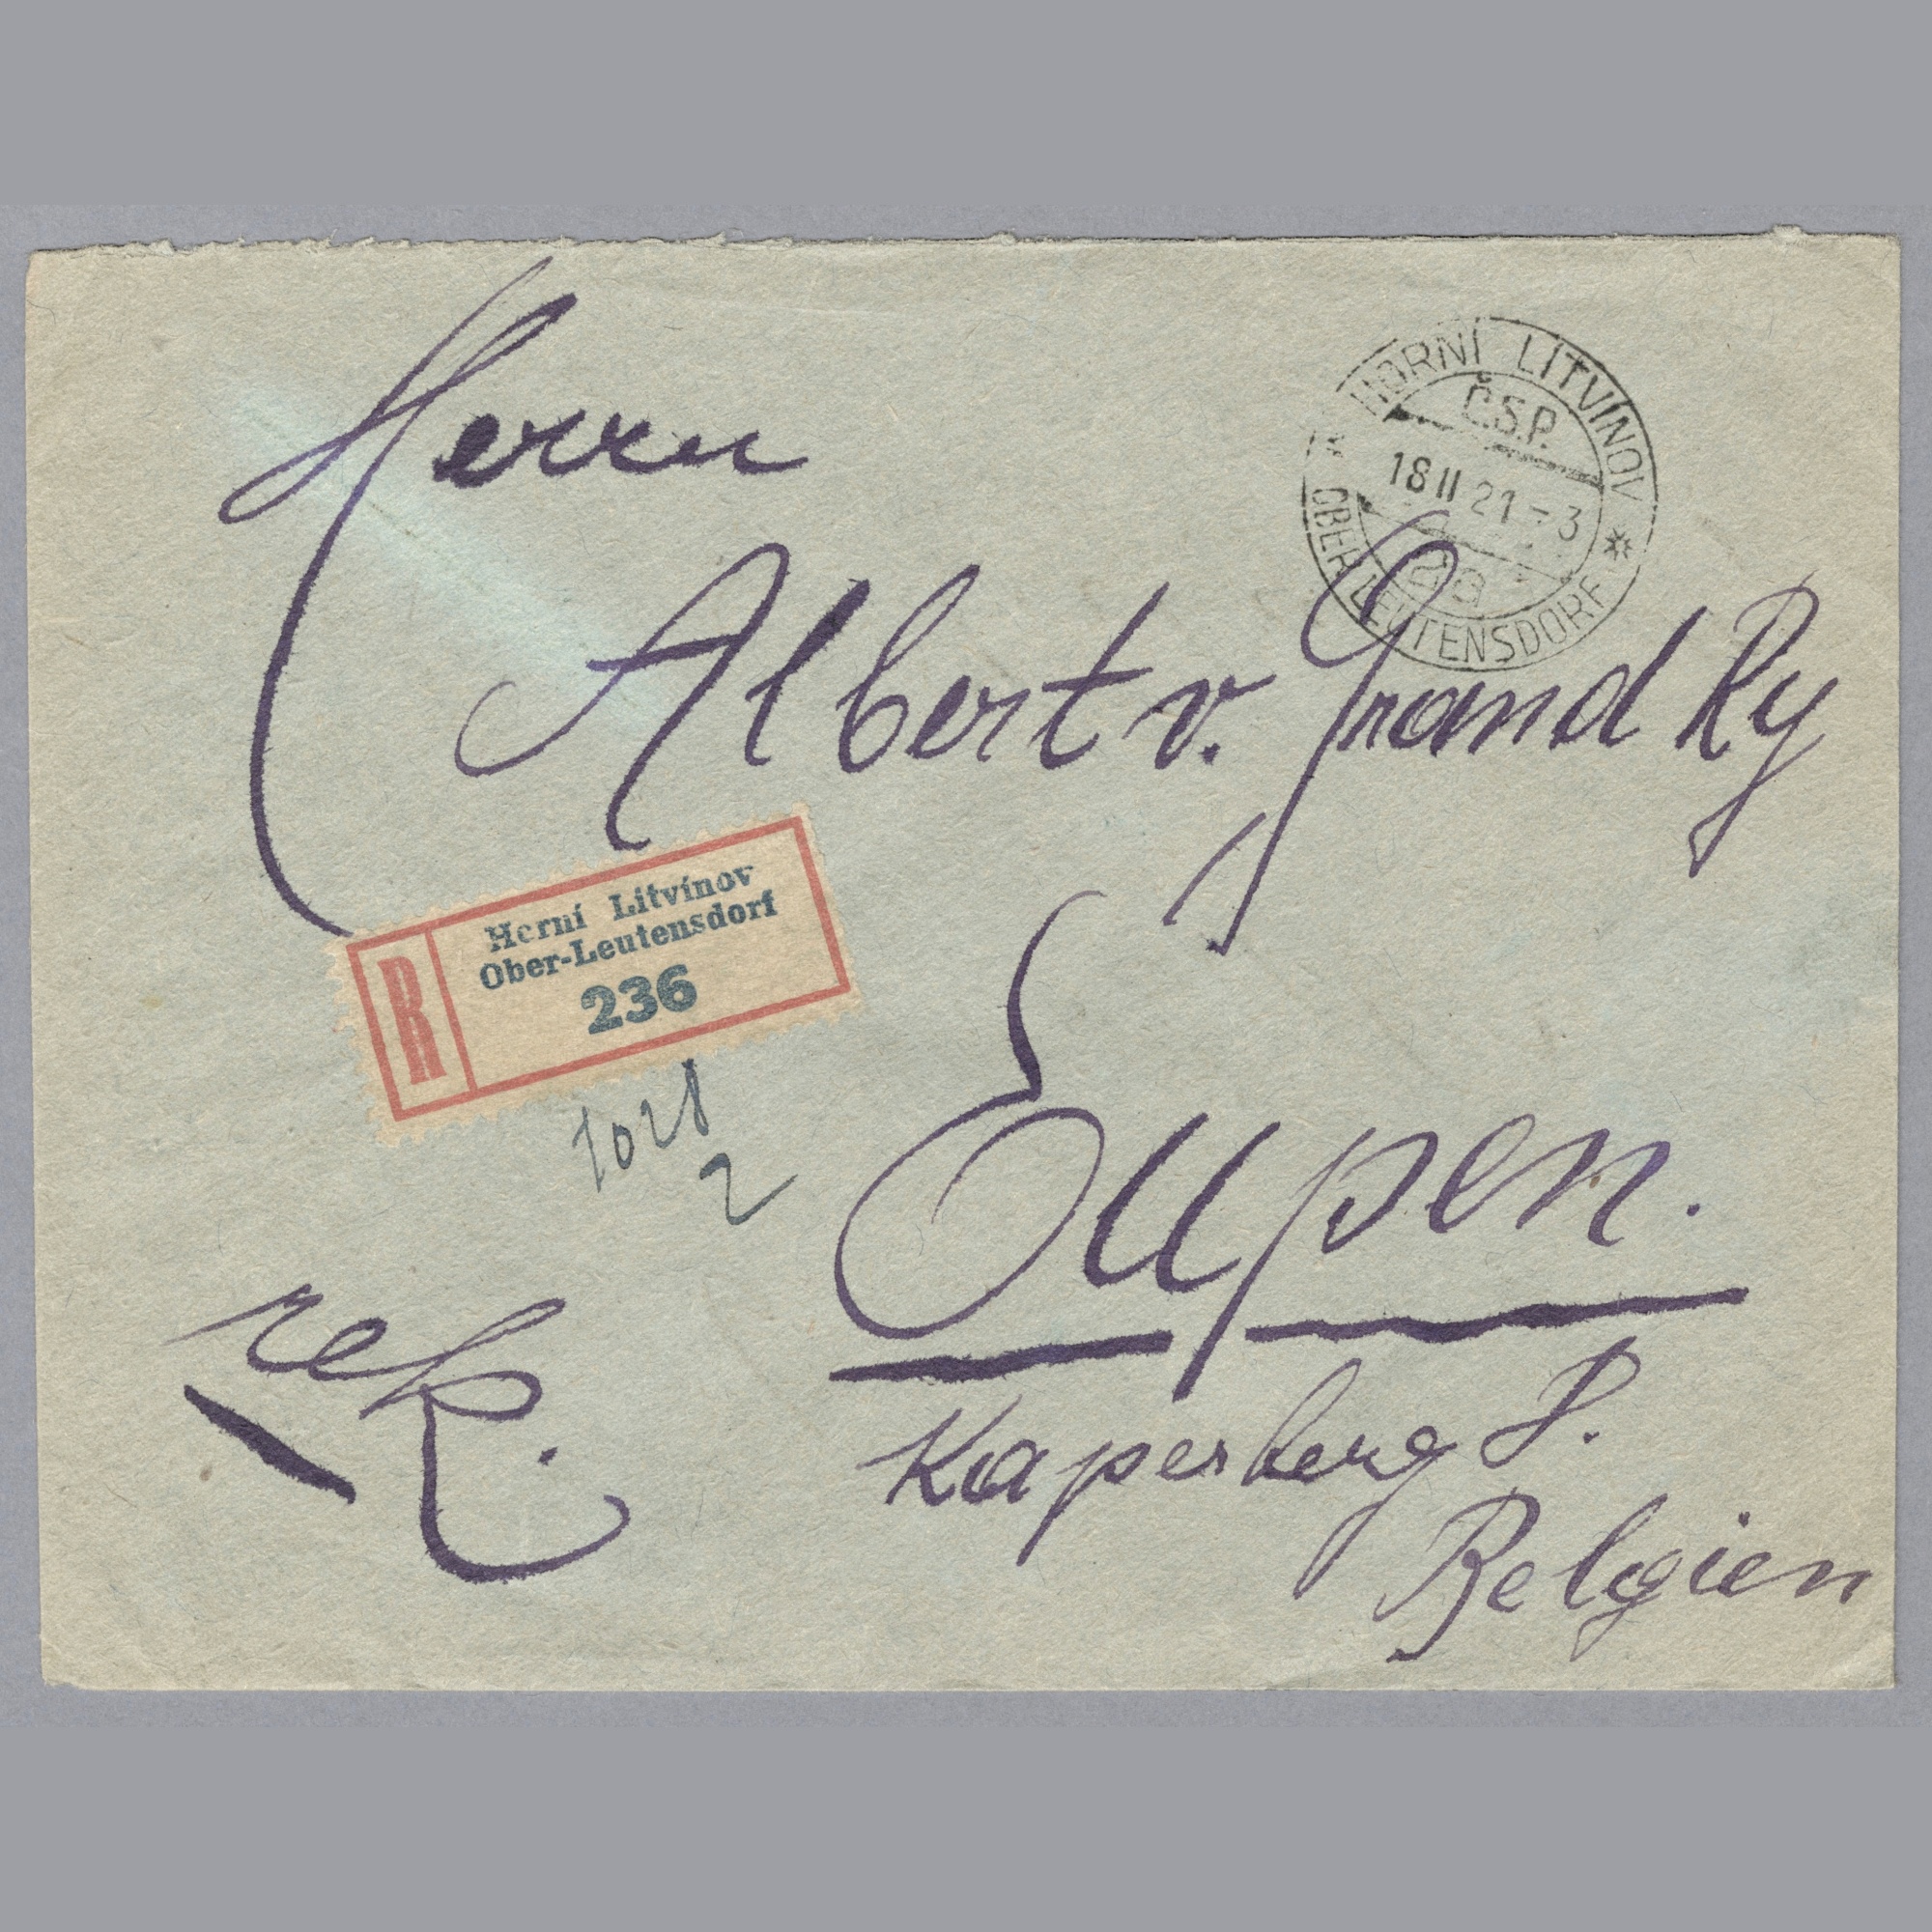 Herrn
HORNÍ LITVÍNOV
Č.S.P.
18 II 21 - 3
OBER LEUTENSDORF
Albert v. Grand Ry
R
Horní Litvínov
Ober-Leutensdorf
236
2
Eupen.
rek.
Kaperberg
Belgien